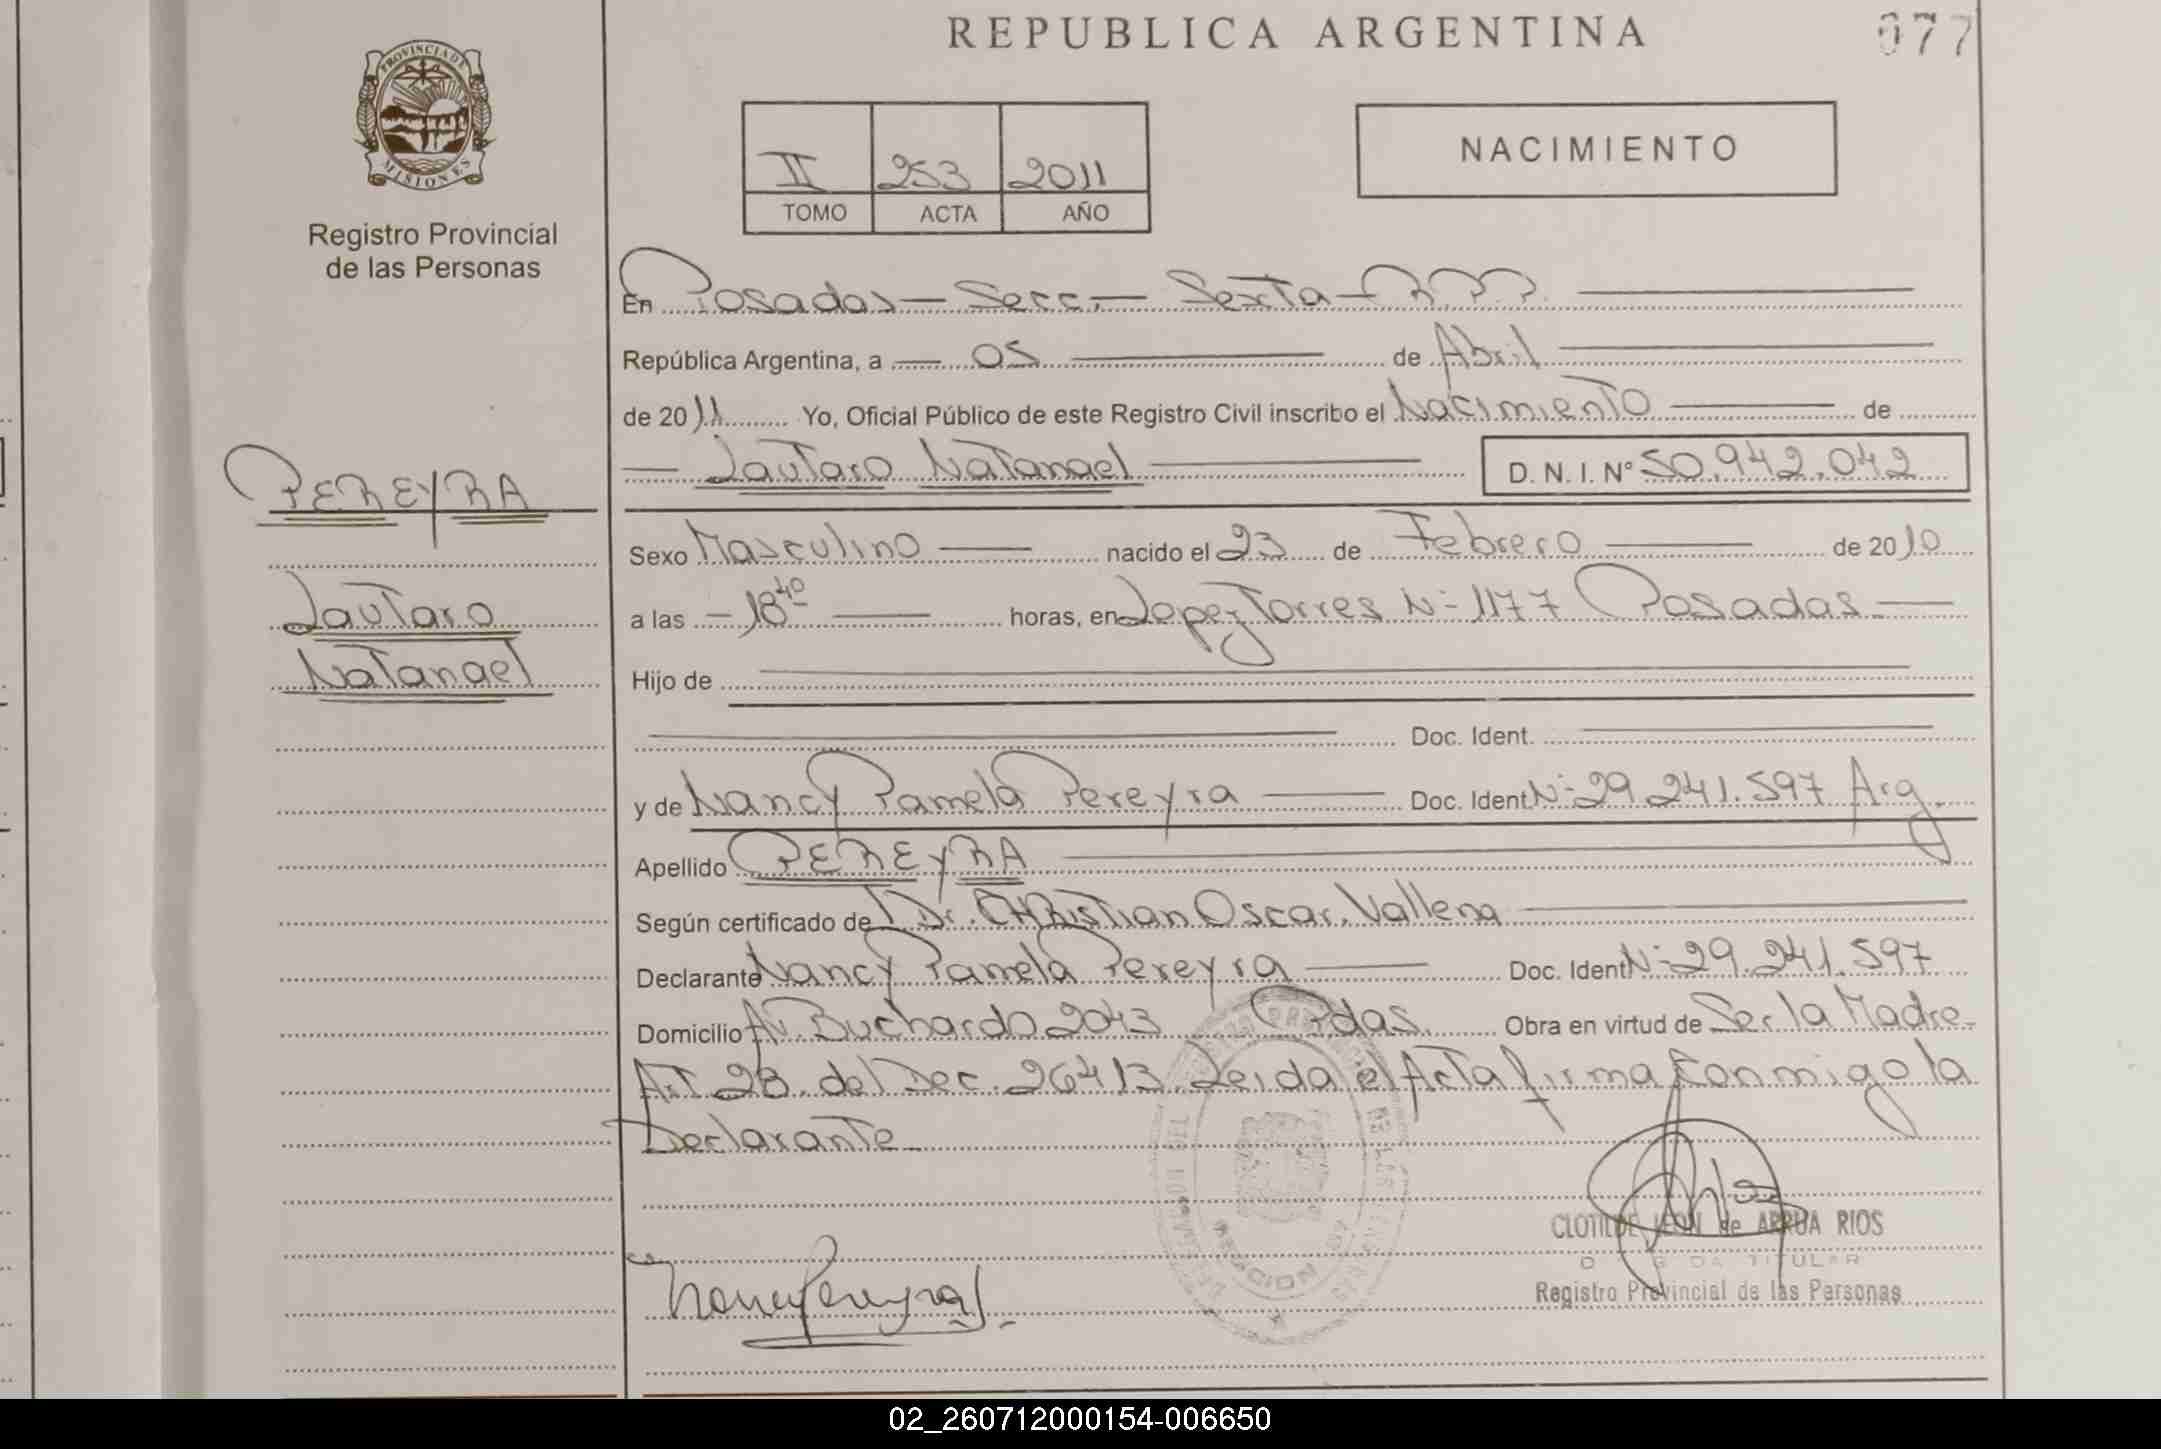 REPUBLICA ARGENTINA
077
PROVINCIA DE
MISIONES
Registro Provincial
de las Personas
II 253 2011
TOMO ACTA AÑO
NACIMIENTO
En Posadas - Secc. - Sexta - R.P.P.
República Argentina, a 05 de Abril
de 2011 Yo, Oficial Público de este Registro Civil inscribo el Nacimiento de
Lautaro Natanael D. N. I. Nº 50.942.042
PEREYRA
Lautaro
Natanael
Sexo Masculino nacido el 23 de Febrero de 2010
a las - 18 40 horas, en Lopez Torres Nº 1177 Posadas
Hijo de
Doc. Ident.
y de Nancy Pamela Pereyra Doc. Ident. Nº 29.241.597 Arg.
Apellido PEREYRA
Según certificado de Dr. CHRistian Oscar. Vallena
Declarante Nancy Pamela Pereyra Doc. Ident. Nº 29.241.597
Domicilio Av. Buchardo 2043 Pdas. Obra en virtud de Ser la Madre
Art. 28. del Dec. 2641 Leida el Acta firma conmigo la
Declarante
Nancy Pereyra
CLOTILDE LEON de ARRUA RIOS
TITULAR
Registro Provincial de las Personas
02_260712000154-006650